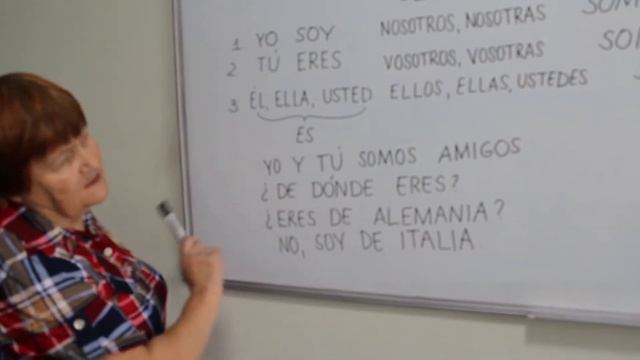 1 YO SOY NOSOTROS, NOSOTRAS
2 TÚ ERES VOSOTROS, VOSOTRAS
3 ÉL, ELLA, USTED ELLOS, ELLAS, USTEDES
ES
YO Y TÚ SOMOS AMIGOS
¿DE DÓNDE ERES?
¿ERES DE ALEMANIA?
NO, SOY DE ITALIA